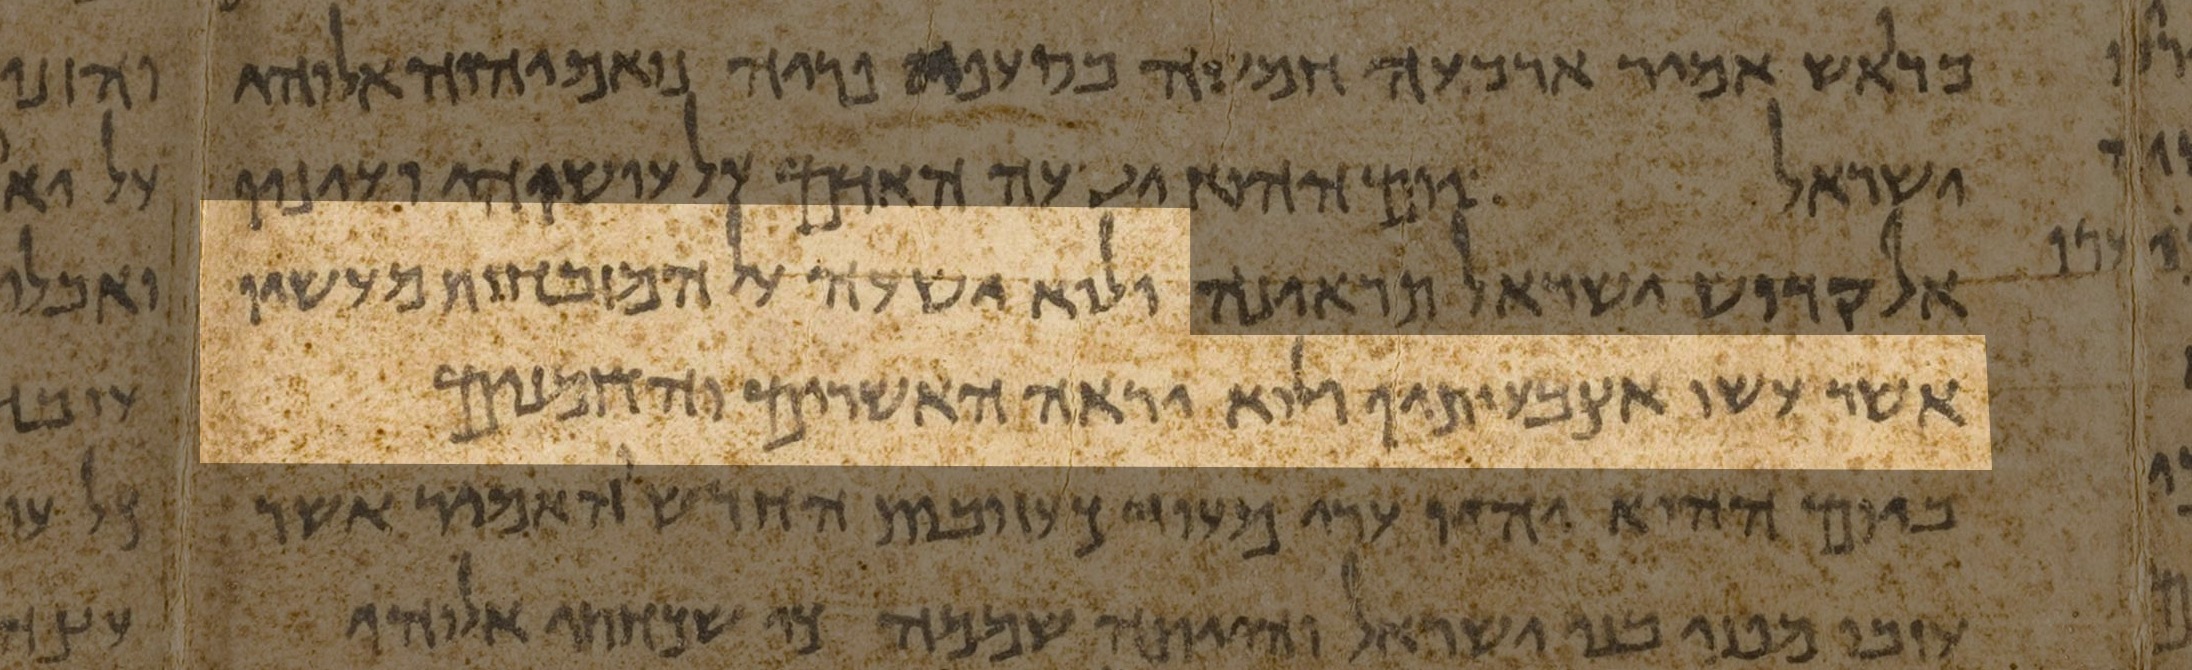 בראש אמיר ארבעה חמשה בסעפי פריה נואם יהוה אלוהי
ישראל ביום ההוא ישעה האדם על עושוהי ועיניו
אל קדוש ישראל תראינה ולוא ישעה על המזבחות מעשיו
אשר עשו אצבעותיו ולוא יראה האשרים והחמנים
ביום ההוא יהיו ערי מעוזו כעזובת החרש והאמיר אשר
עזבו מפני בני ישראל והייתה שממה כי שכחתי אלוהי